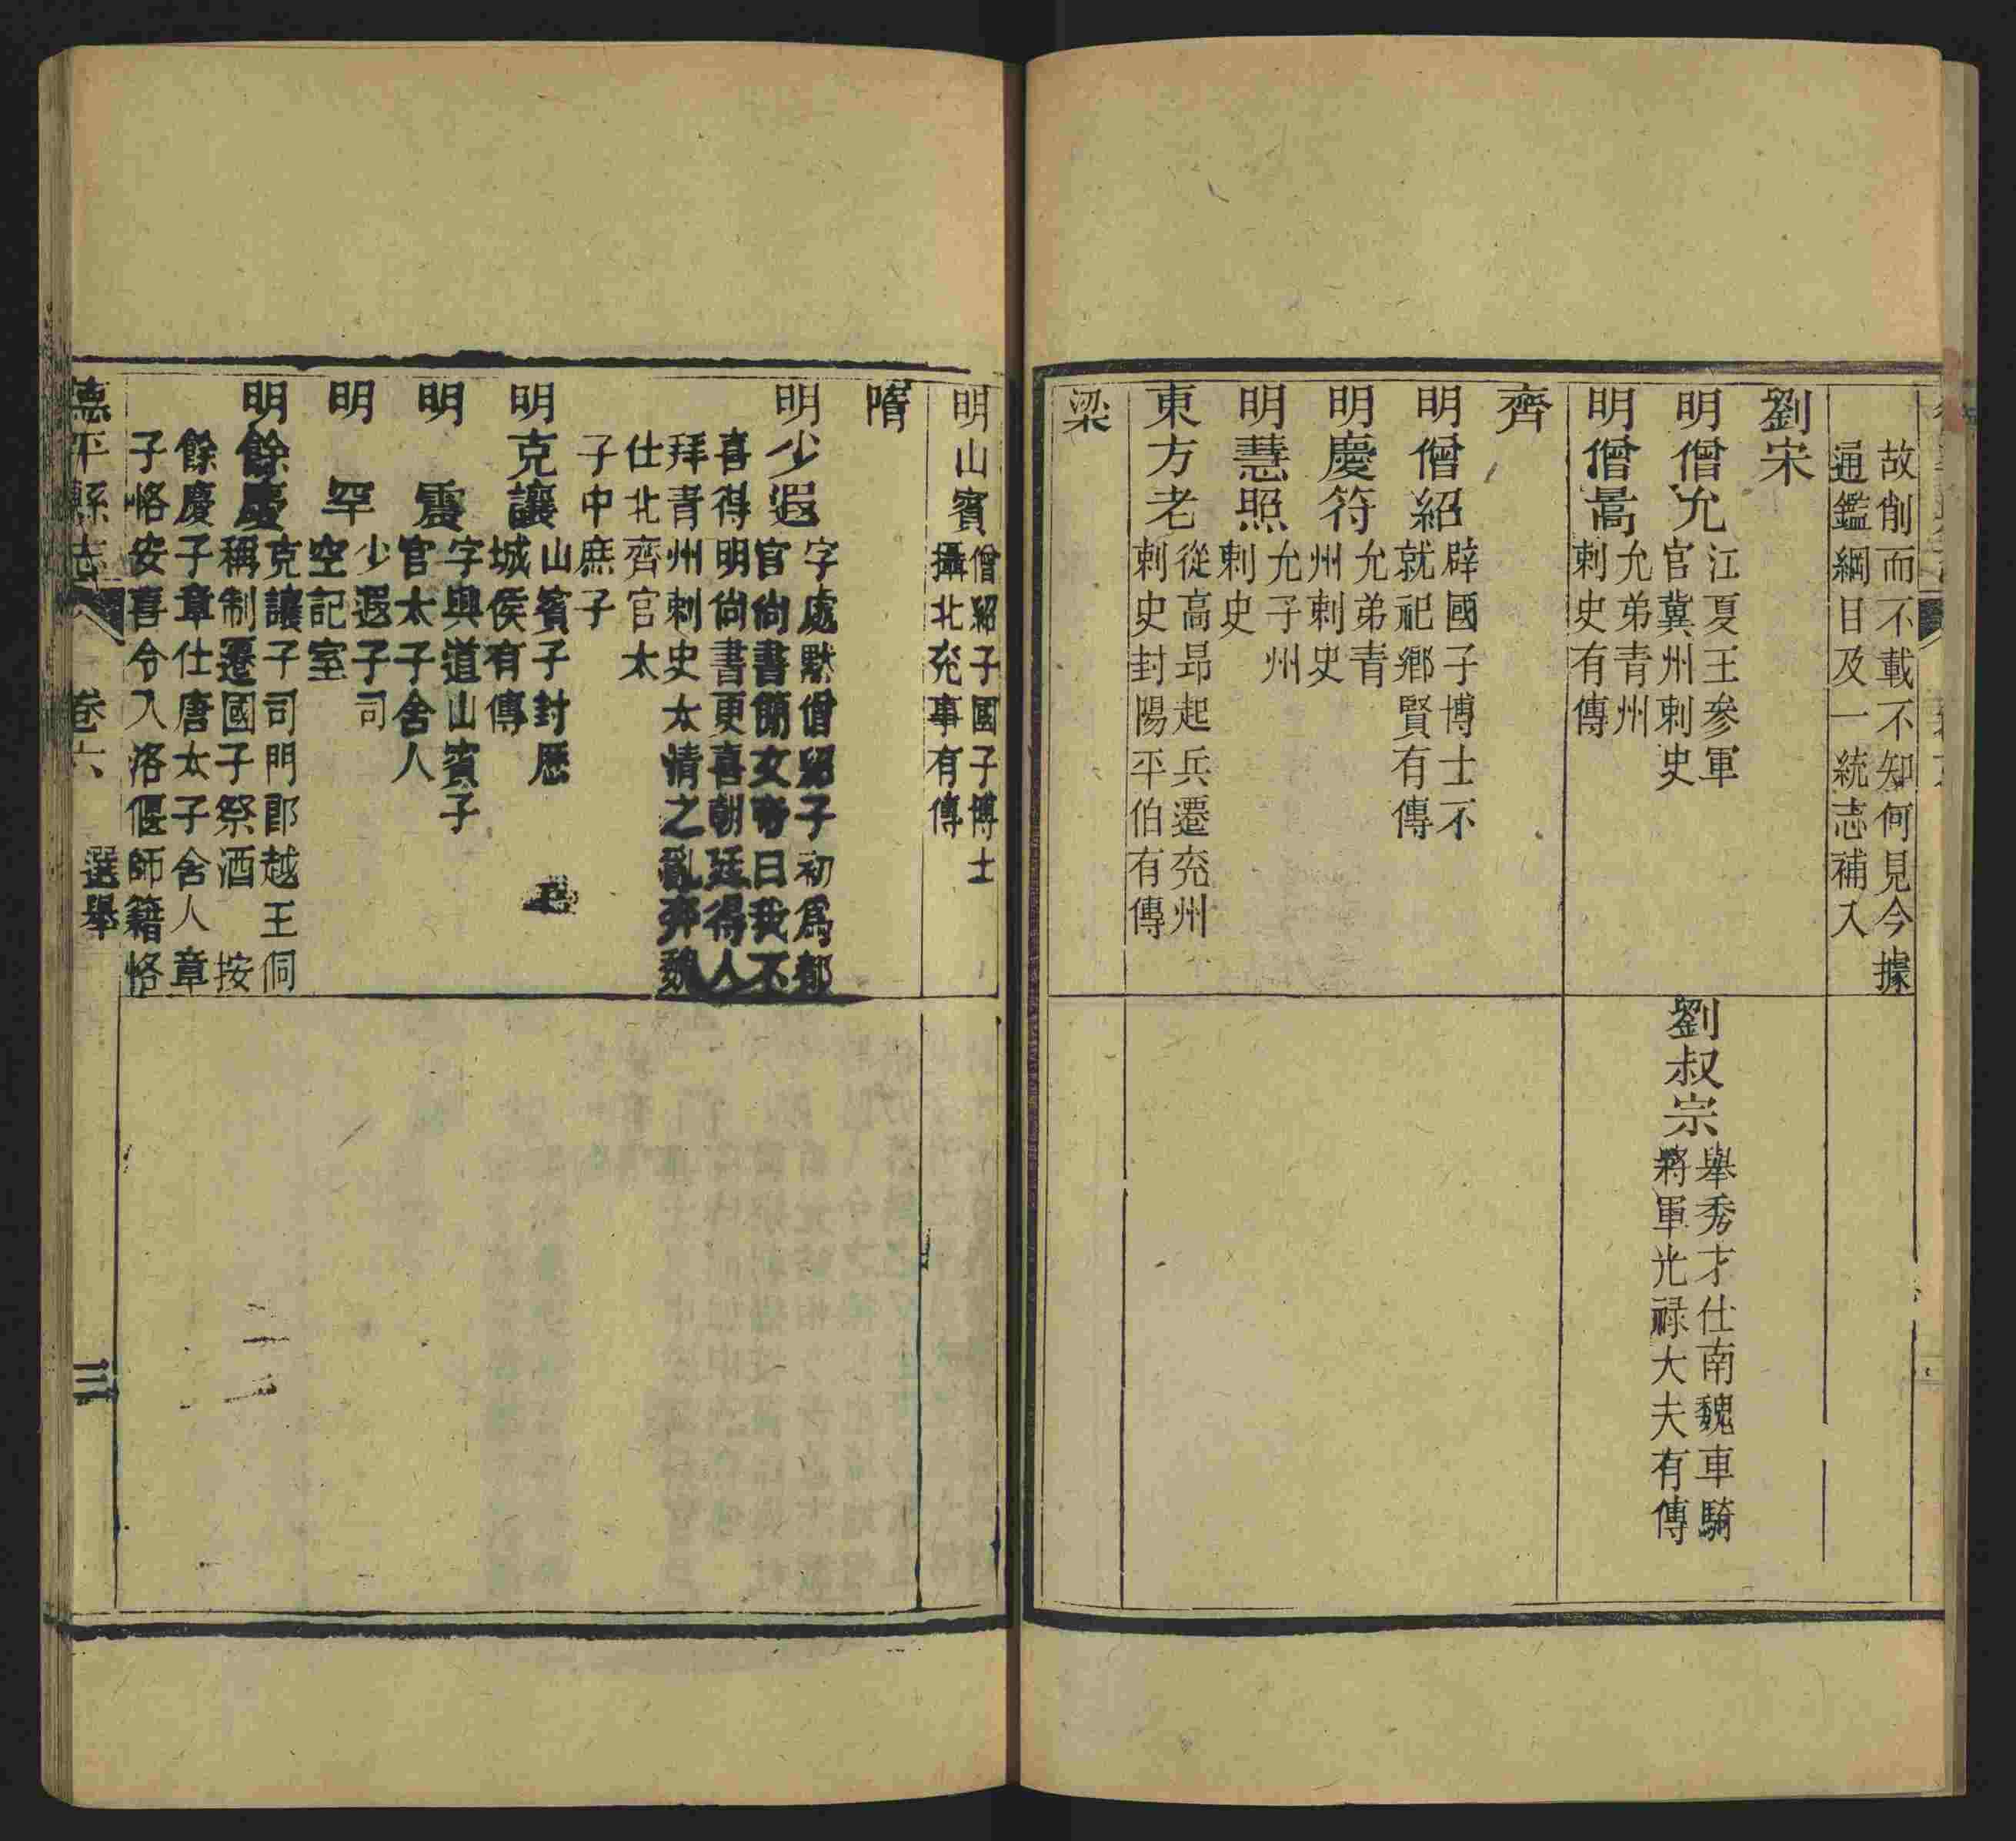 故削而不載不知何見今據
通鑑綱目及一統志補入
劉宋
明僧允
江夏王參軍
官冀州刺史
劉叔宗
舉秀才仕南魏車騎
將軍光祿大夫有傳
明僧暠
允弟青州
刺史有傳
齊
明僧紹
辟國子博士不
就祀鄉賢有傳
明慶符
允弟青
州刺史
明慧照
允子州
刺史
東方老
從高昂起兵遷兖州
刺史封陽平伯有傳
梁
明山賓
僧紹子國子博士
攝北兖事有傳
隋
明少遐
字處默僧紹子初爲都
官尚書簡文帝曰我不
喜得明尚書更喜朝廷得人
拜青州刺史太清之亂奔魏
仕北齊官太
子中庶子
明克讓
山賓子封歷
城侯有傳
明震
字興道山賓子
官太子舍人
明罕
少遐子司
空記室
明餘慶
克讓子司門郎越王侗
稱制遷國子祭酒 按
餘慶子章仕唐太子舍人章
子恪安喜令入洛偃師籍恪
德平縣志 卷六 選舉 三